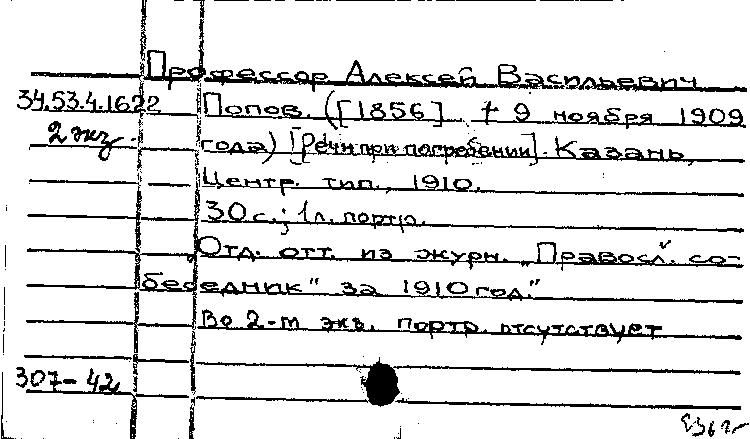 Профессор Алексей Васильевич
34.53.4.1622 Попов. ([1856] † 9 ноября 1909
2 экз. года) [Речи при погребении]. Казань,
Центр. тип., 1910.
30 с.; 1 л. портр.
„Отд. отт. из журн. „Правосл. со-
беседник" за 1910 год."
Во 2-м экз. портр. отсутствует
307-42